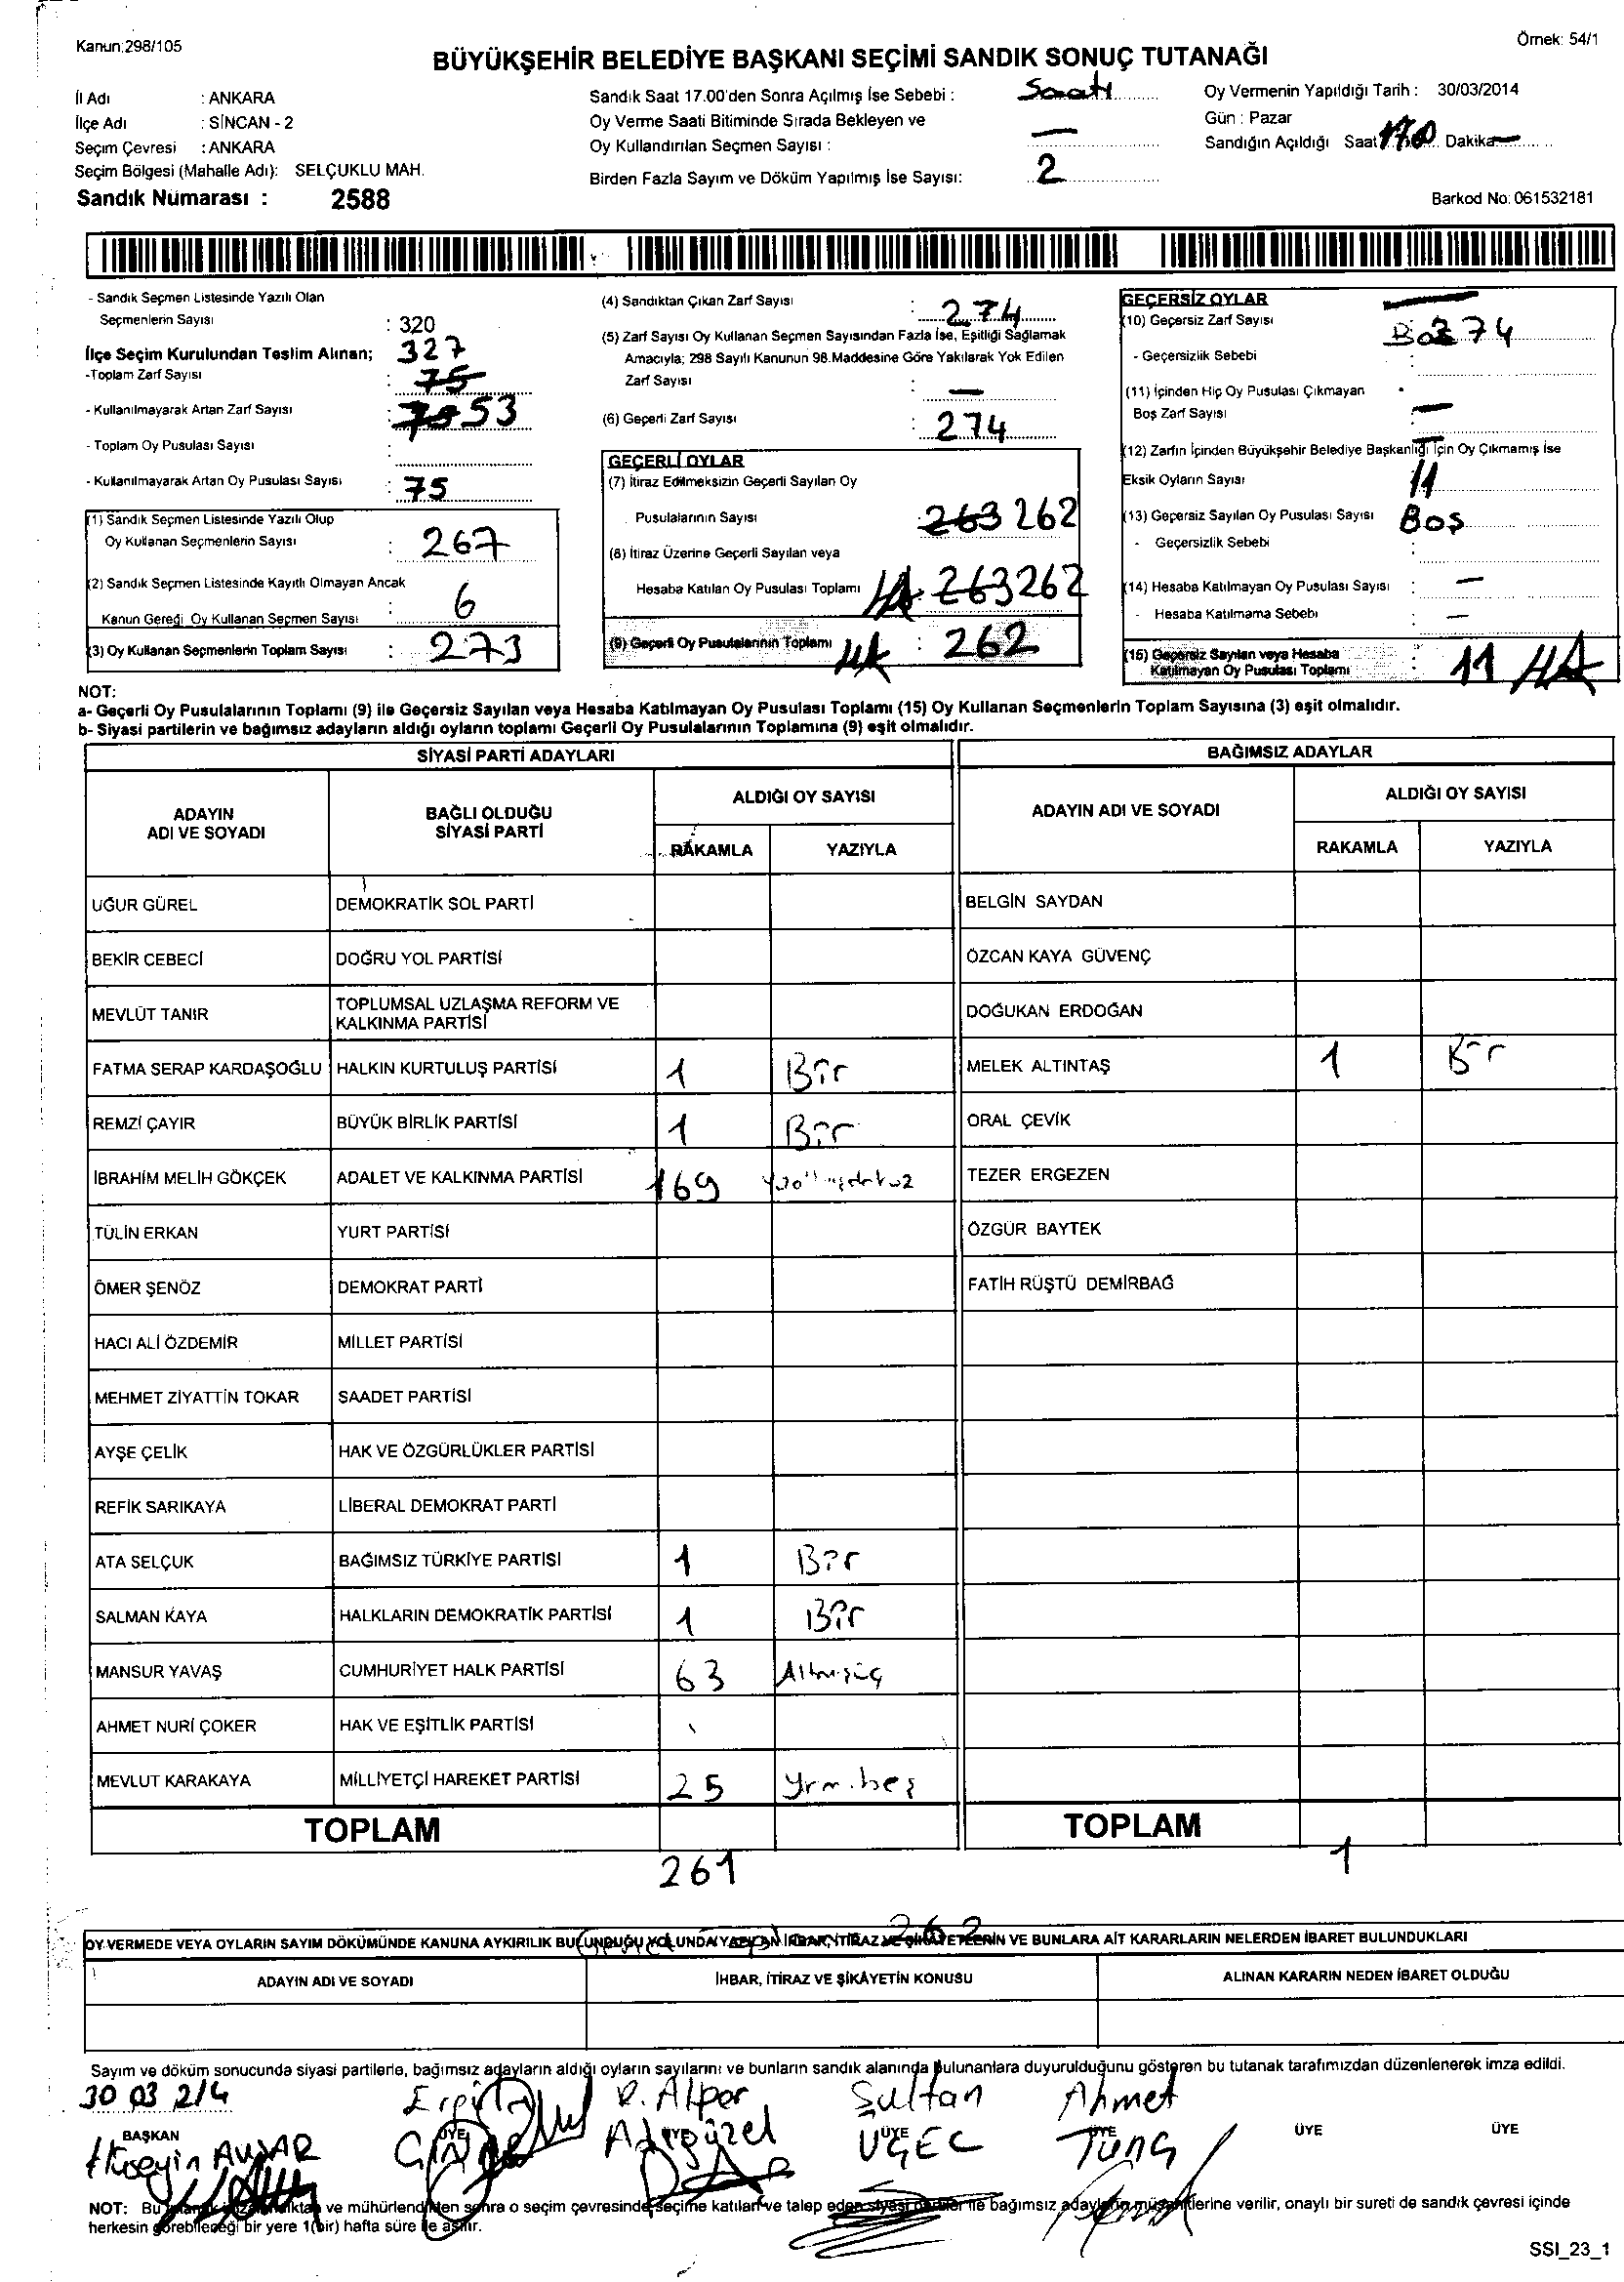 Kanun:298/105
Örnek: 54/1
BÜYÜKŞEHİR BELEDİYE BAŞKANI SEÇİMİ SANDIK SONUÇ TUTANAĞI
İl Adı : ANKARA
İlçe Adı : SİNCAN - 2
Seçim Çevresi : ANKARA
Seçim Bölgesi (Mahalle Adı): SELÇUKLU MAH.
Sandık Numarası : 2588
Sandık Saat 17.00'den Sonra Açılmış İse Sebebi : Saati
Oy Verme Saati Bitiminde Sırada Bekleyen ve
Oy Kullandırılan Seçmen Sayısı : —
Birden Fazla Sayım ve Döküm Yapılmış İse Sayısı: 2
Oy Vermenin Yapıldığı Tarih : 30/03/2014
Gün : Pazar
Sandığın Açıldığı Saat Dakika —
Barkod No: 061532181
- Sandık Seçmen Listesinde Yazılı Olan
Seçmenlerin Sayısı : 320
İlçe Seçim Kurulundan Teslim Alınan; 327
-Toplam Zarf Sayısı : 75
- Kullanılmayarak Artan Zarf Sayısı : 53
- Toplam Oy Pusulası Sayısı :
- Kullanılmayarak Artan Oy Pusulası Sayısı : 75
(1) Sandık Seçmen Listesinde Yazılı Olup
Oy Kullanan Seçmenlerin Sayısı : 267
(2) Sandık Seçmen Listesinde Kayıtlı Olmayan Ancak
Kanun Gereği Oy Kullanan Seçmen Sayısı : 6
(3) Oy Kullanan Seçmenlerin Toplam Sayısı : 273
(4) Sandıktan Çıkan Zarf Sayısı : 274
(5) Zarf Sayısı Oy Kullanan Seçmen Sayısından Fazla İse, Eşitliği Sağlamak
Amacıyla; 298 Sayılı Kanunun 98.Maddesine Göre Yakılarak Yok Edilen
Zarf Sayısı : —
(6) Geçerli Zarf Sayısı : 274
GEÇERLİ OYLAR
(7) İtiraz Edilmeksizin Geçerli Sayılan Oy
Pusulalarının Sayısı 263 262
(8) İtiraz Üzerine Geçerli Sayılan veya
Hesaba Katılan Oy Pusulası Toplamı 263 262
(9) Geçerli Oy Pusulalarının Toplamı : 262
GEÇERSİZ OYLAR
(10) Geçersiz Zarf Sayısı 274
- Geçersizlik Sebebi :
(11) İçinden Hiç Oy Pusulası Çıkmayan
Boş Zarf Sayısı —
(12) Zarfın İçinden Büyükşehir Belediye Başkanlığı İçin Oy Çıkmamış İse
Eksik Oyların Sayısı 11
(13) Geçersiz Sayılan Oy Pusulası Sayısı Boş
- Geçersizlik Sebebi :
(14) Hesaba Katılmayan Oy Pusulası Sayısı : —
- Hesaba Katılmama Sebebi : —
(15) Geçersiz Sayılan veya Hesaba
Katılmayan Oy Pusulası Toplamı : 11 HA
NOT:
a- Geçerli Oy Pusulalarının Toplamı (9) ile Geçersiz Sayılan veya Hesaba Katılmayan Oy Pusulası Toplamı (15) Oy Kullanan Seçmenlerin Toplam Sayısına (3) eşit olmalıdır.
b- Siyasi partilerin ve bağımsız adayların aldığı oyların toplamı Geçerli Oy Pusulalarının Toplamına (9) eşit olmalıdır.
SİYASİ PARTİ ADAYLARI
BAĞIMSIZ ADAYLAR
ADAYIN ADI VE SOYADI
BAĞLI OLDUĞU SİYASİ PARTİ
ALDIĞI OY SAYISI
RAKAMLA YAZIYLA
ADAYIN ADI VE SOYADI
ALDIĞI OY SAYISI
RAKAMLA YAZIYLA
UĞUR GÜREL DEMOKRATİK SOL PARTİ BELGİN SAYDAN
BEKİR CEBECİ DOĞRU YOL PARTİSİ ÖZCAN KAYA GÜVENÇ
MEVLÜT TANIR TOPLUMSAL UZLAŞMA REFORM VE KALKINMA PARTİSİ DOĞUKAN ERDOĞAN
FATMA SERAP KARDAŞOĞLU HALKIN KURTULUŞ PARTİSİ 1 Bir MELEK ALTINTAŞ 1 Bir
REMZİ ÇAYIR BÜYÜK BİRLİK PARTİSİ 1 Bir ORAL ÇEVİK
İBRAHİM MELİH GÖKÇEK ADALET VE KALKINMA PARTİSİ 169 TEZER ERGEZEN
TÜLİN ERKAN YURT PARTİSİ ÖZGÜR BAYTEK
ÖMER ŞENÖZ DEMOKRAT PARTİ FATİH RÜŞTÜ DEMİRBAĞ
HACI ALİ ÖZDEMİR MİLLET PARTİSİ
MEHMET ZİYATTİN TOKAR SAADET PARTİSİ
AYŞE ÇELİK HAK VE ÖZGÜRLÜKLER PARTİSİ
REFİK SARIKAYA LİBERAL DEMOKRAT PARTİ
ATA SELÇUK BAĞIMSIZ TÜRKİYE PARTİSİ 1 Bir
SALMAN KAYA HALKLARIN DEMOKRATİK PARTİSİ 1 Bir
MANSUR YAVAŞ CUMHURİYET HALK PARTİSİ 63 Altmışüç
AHMET NURİ ÇOKER HAK VE EŞİTLİK PARTİSİ
MEVLUT KARAKAYA MİLLİYETÇİ HAREKET PARTİSİ 25 Yirmibeş
TOPLAM 261 TOPLAM 1
262
OY VERMEDE VEYA OYLARIN SAYIM DÖKÜMÜNDE KANUNA AYKIRILIK BULUNDUĞU YOLUNDA YAPILAN İHBAR, İTİRAZ VE ŞİKAYETLERİN VE BUNLARA AİT KARARLARIN NELERDEN İBARET BULUNDUKLARI
ADAYIN ADI VE SOYADI İHBAR, İTİRAZ VE ŞİKÂYETİN KONUSU ALINAN KARARIN NEDEN İBARET OLDUĞU
Sayım ve döküm sonucunda siyasi partilerle, bağımsız adayların aldığı oyların sayılarını ve bunların sandık alanında bulunanlara duyurulduğunu gösteren bu tutanak tarafımızdan düzenlenerek imza edildi.
30 03 214
BAŞKAN ÜYE ÜYE ÜYE ÜYE ÜYE ÜYE
Hüseyin AVŞAR
R. Alper Adıgüzel
Sultan UĞEC
Ahmet TUNÇ
NOT: Bu ve mühürlendikten sonra o seçim çevresinde seçime katılan ve talep eden siyasi partiler ile bağımsız adayların müşahitlerine verilir, onaylı bir sureti de sandık çevresi içinde
herkesin görebileceği bir yere 1(bir) hafta süre ile asılır.
SSI_23_1